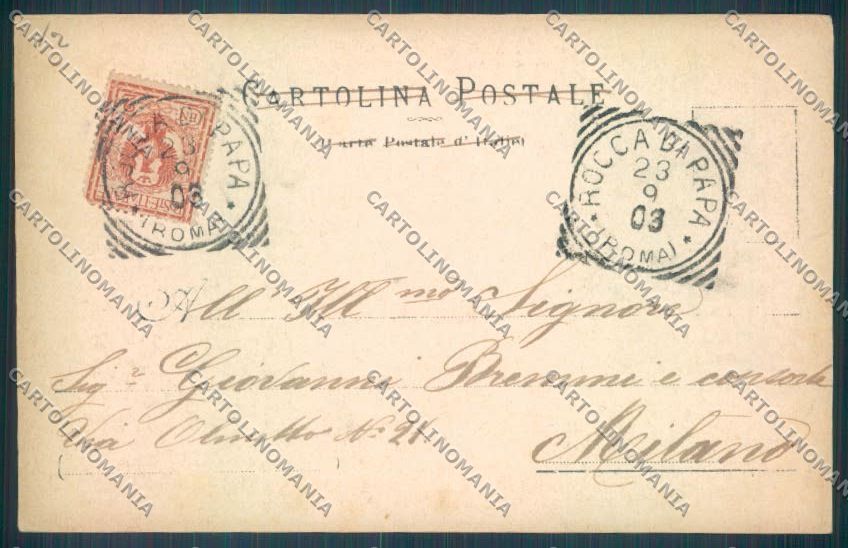 CARTOLINA POSTALE
Carte Postale d'Italie
ROCCA DI PAPA
23
9
03
(ROMA)
PAPA
03
(ROMA)
All' Ill mo Signore
Sig.r Giovanni Bremmi e consorte
Via Olmetto No. 21
Milano
CARTOLINOMANIA